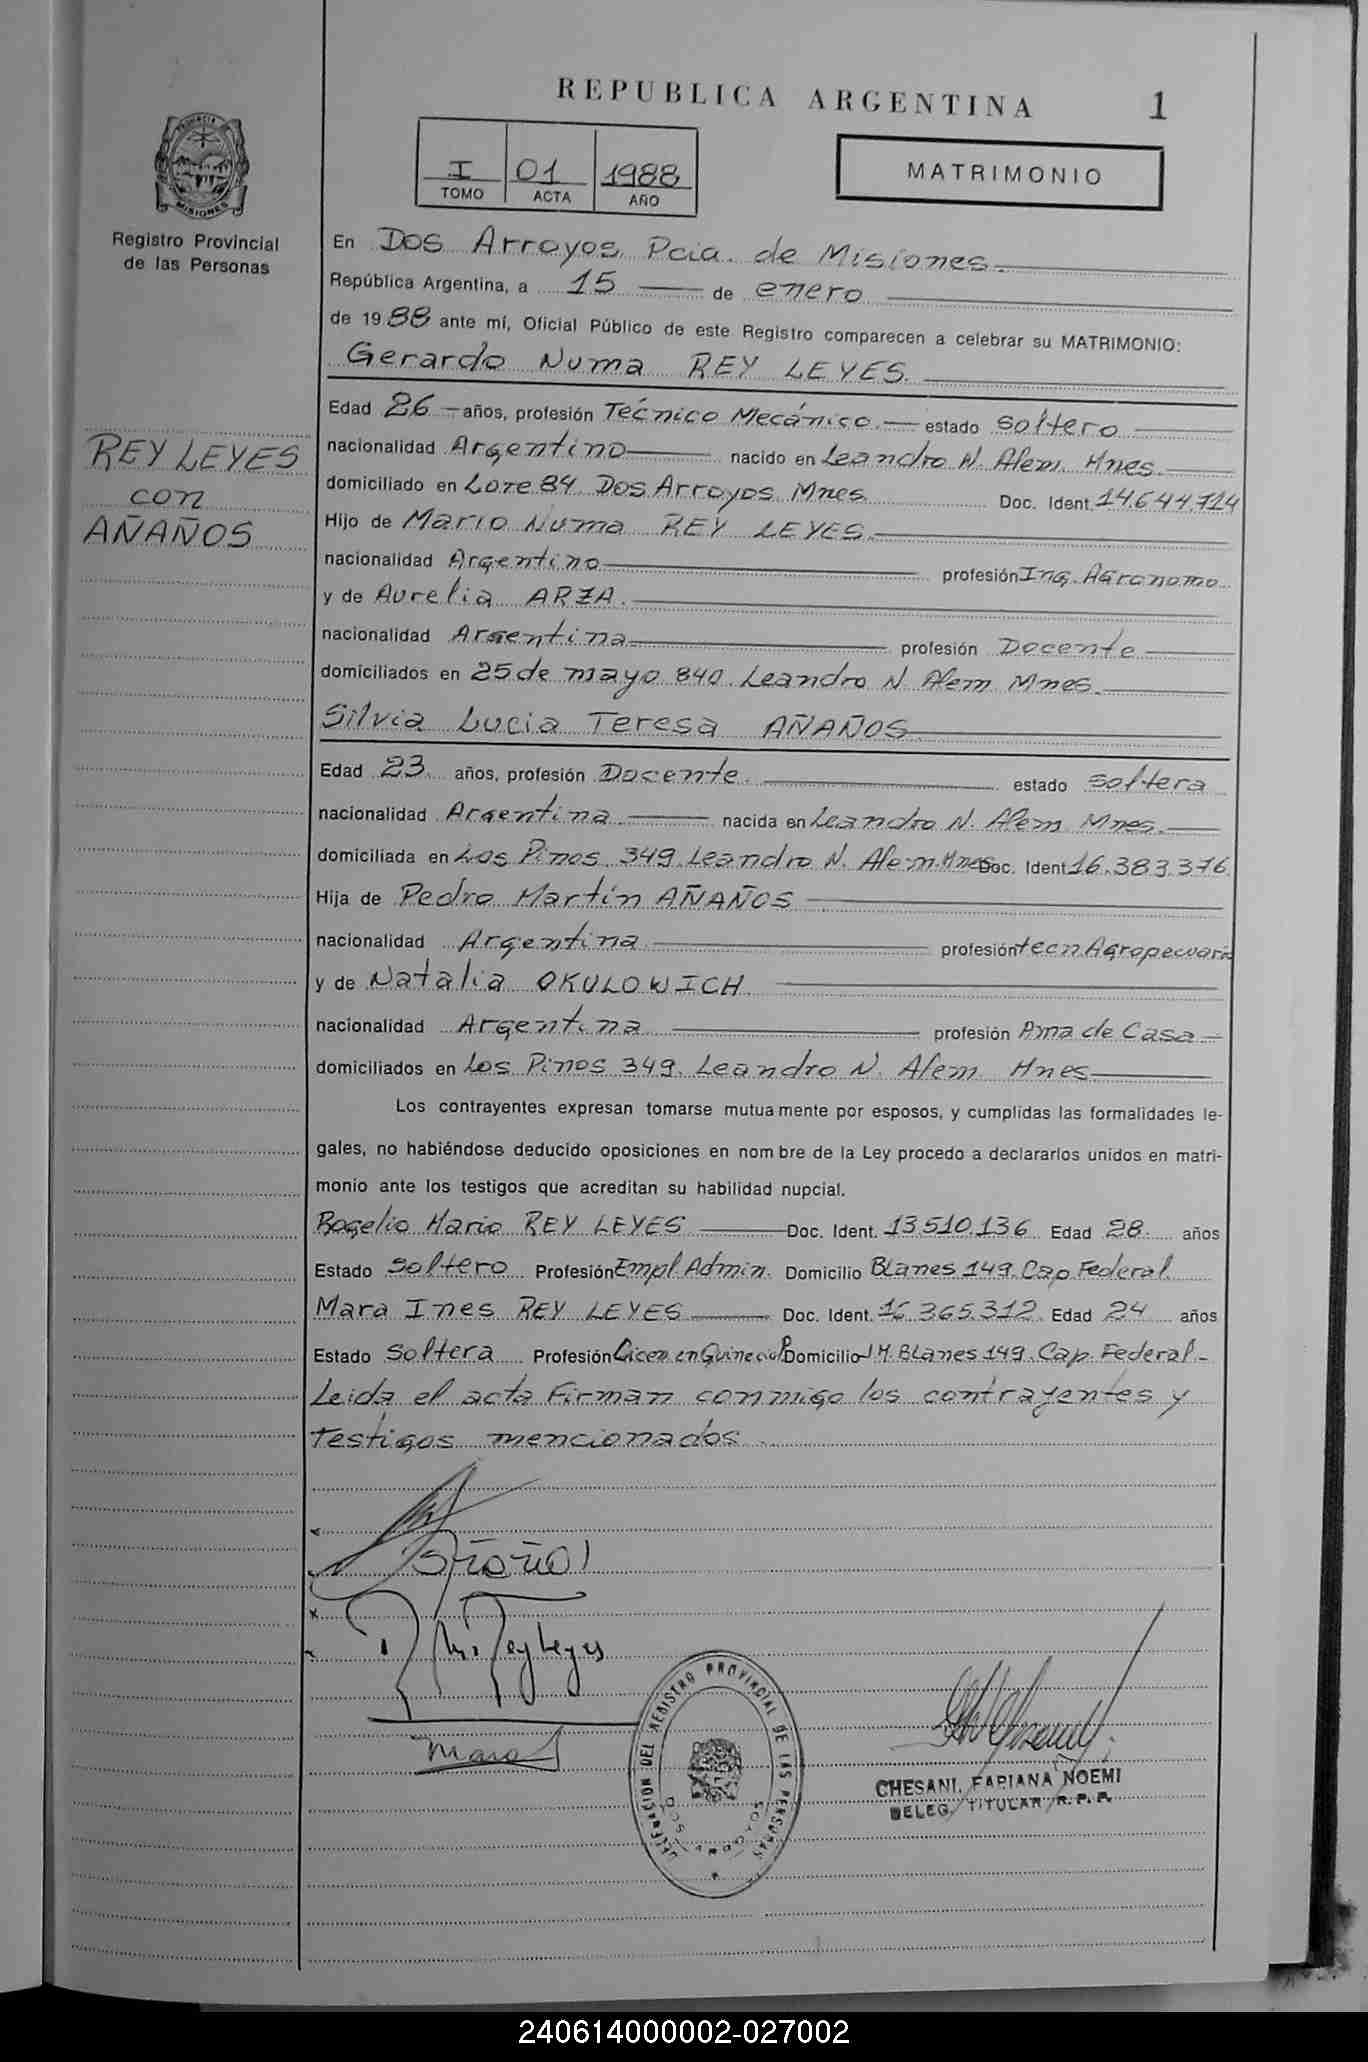 REPUBLICA ARGENTINA 1
PROVINCIA
MISIONES
Registro Provincial
de las Personas
I 01 1988
TOMO ACTA AÑO
MATRIMONIO
REY LEYES
con
AÑAÑOS
En Dos Arroyos, Pcia. de Misiones.
República Argentina, a 15 de enero
de 1988 ante mí, Oficial Público de este Registro comparecen a celebrar su MATRIMONIO:
Gerardo Numa REY LEYES.
Edad 26 años, profesión Técnico Mecánico. estado soltero
nacionalidad Argentino nacido en Leandro N. Alem. Mnes.
domiciliado en Lote 84 Dos Arroyos Mnes. Doc. Ident. 14.644.714
Hijo de Mario Numa REY LEYES.
nacionalidad Argentino profesión Ing. Agronomo
y de Aurelia ARZA.
nacionalidad Argentina profesión Docente
domiciliados en 25 de mayo 840. Leandro N. Alem Mnes.
Silvia Lucia Teresa AÑAÑOS
Edad 23. años, profesión Docente. estado soltera
nacionalidad Argentina nacida en Leandro N. Alem Mnes.
domiciliada en Los Pinos 349. Leandro N. Alem. Mnes Doc. Ident 16.383.376
Hija de Pedro Martín AÑAÑOS
nacionalidad Argentina profesión tecn. Agropecuario
y de Natalia OKULOWICH
nacionalidad Argentina profesión Ama de Casa
domiciliados en Los Pinos 349. Leandro N. Alem Mnes
Los contrayentes expresan tomarse mutuamente por esposos, y cumplidas las formalidades le-
gales, no habiéndose deducido oposiciones en nombre de la Ley procedo a declararlos unidos en matri-
monio ante los testigos que acreditan su habilidad nupcial.
Rogelio Mario REY LEYES Doc. Ident. 13.510.136 Edad 28 años
Estado soltero Profesión Empl. Admin. Domicilio Blanes 149. Cap Federal.
Mara Ines REY LEYES Doc. Ident. 16.365.312. Edad 24 años
Estado Soltera Profesión Domicilio J.M. Blanes 149. Cap. Federal
Leida el acta firman conmigo los contrayentes y
testigos mencionados
Rey Leyes
Mara
DELEGACION DEL REGISTRO PROVINCIAL DE LAS PERSONAS
DOS ARROYOS
CHESANI, FABIANA NOEMI
DELEG. TITULAR R.P.P.
240614000002-027002